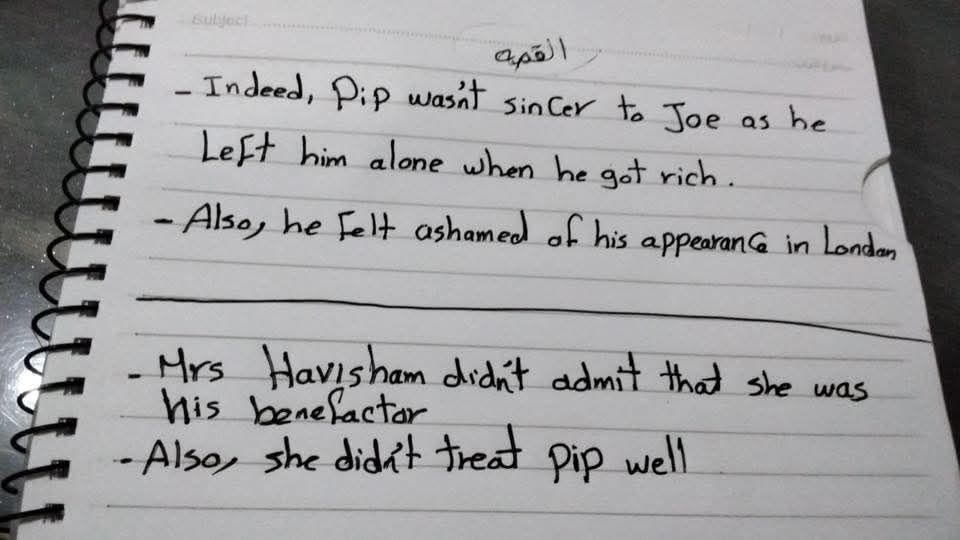 Subject
القصه
- Indeed, Pip wasn't sincer to Joe as he
Left him alone when he got rich.
- Also, he Felt ashamed of his appearance in London
- Mrs Havisham didn't admit that she was
his benefactor
- Also, she didn't treat Pip well